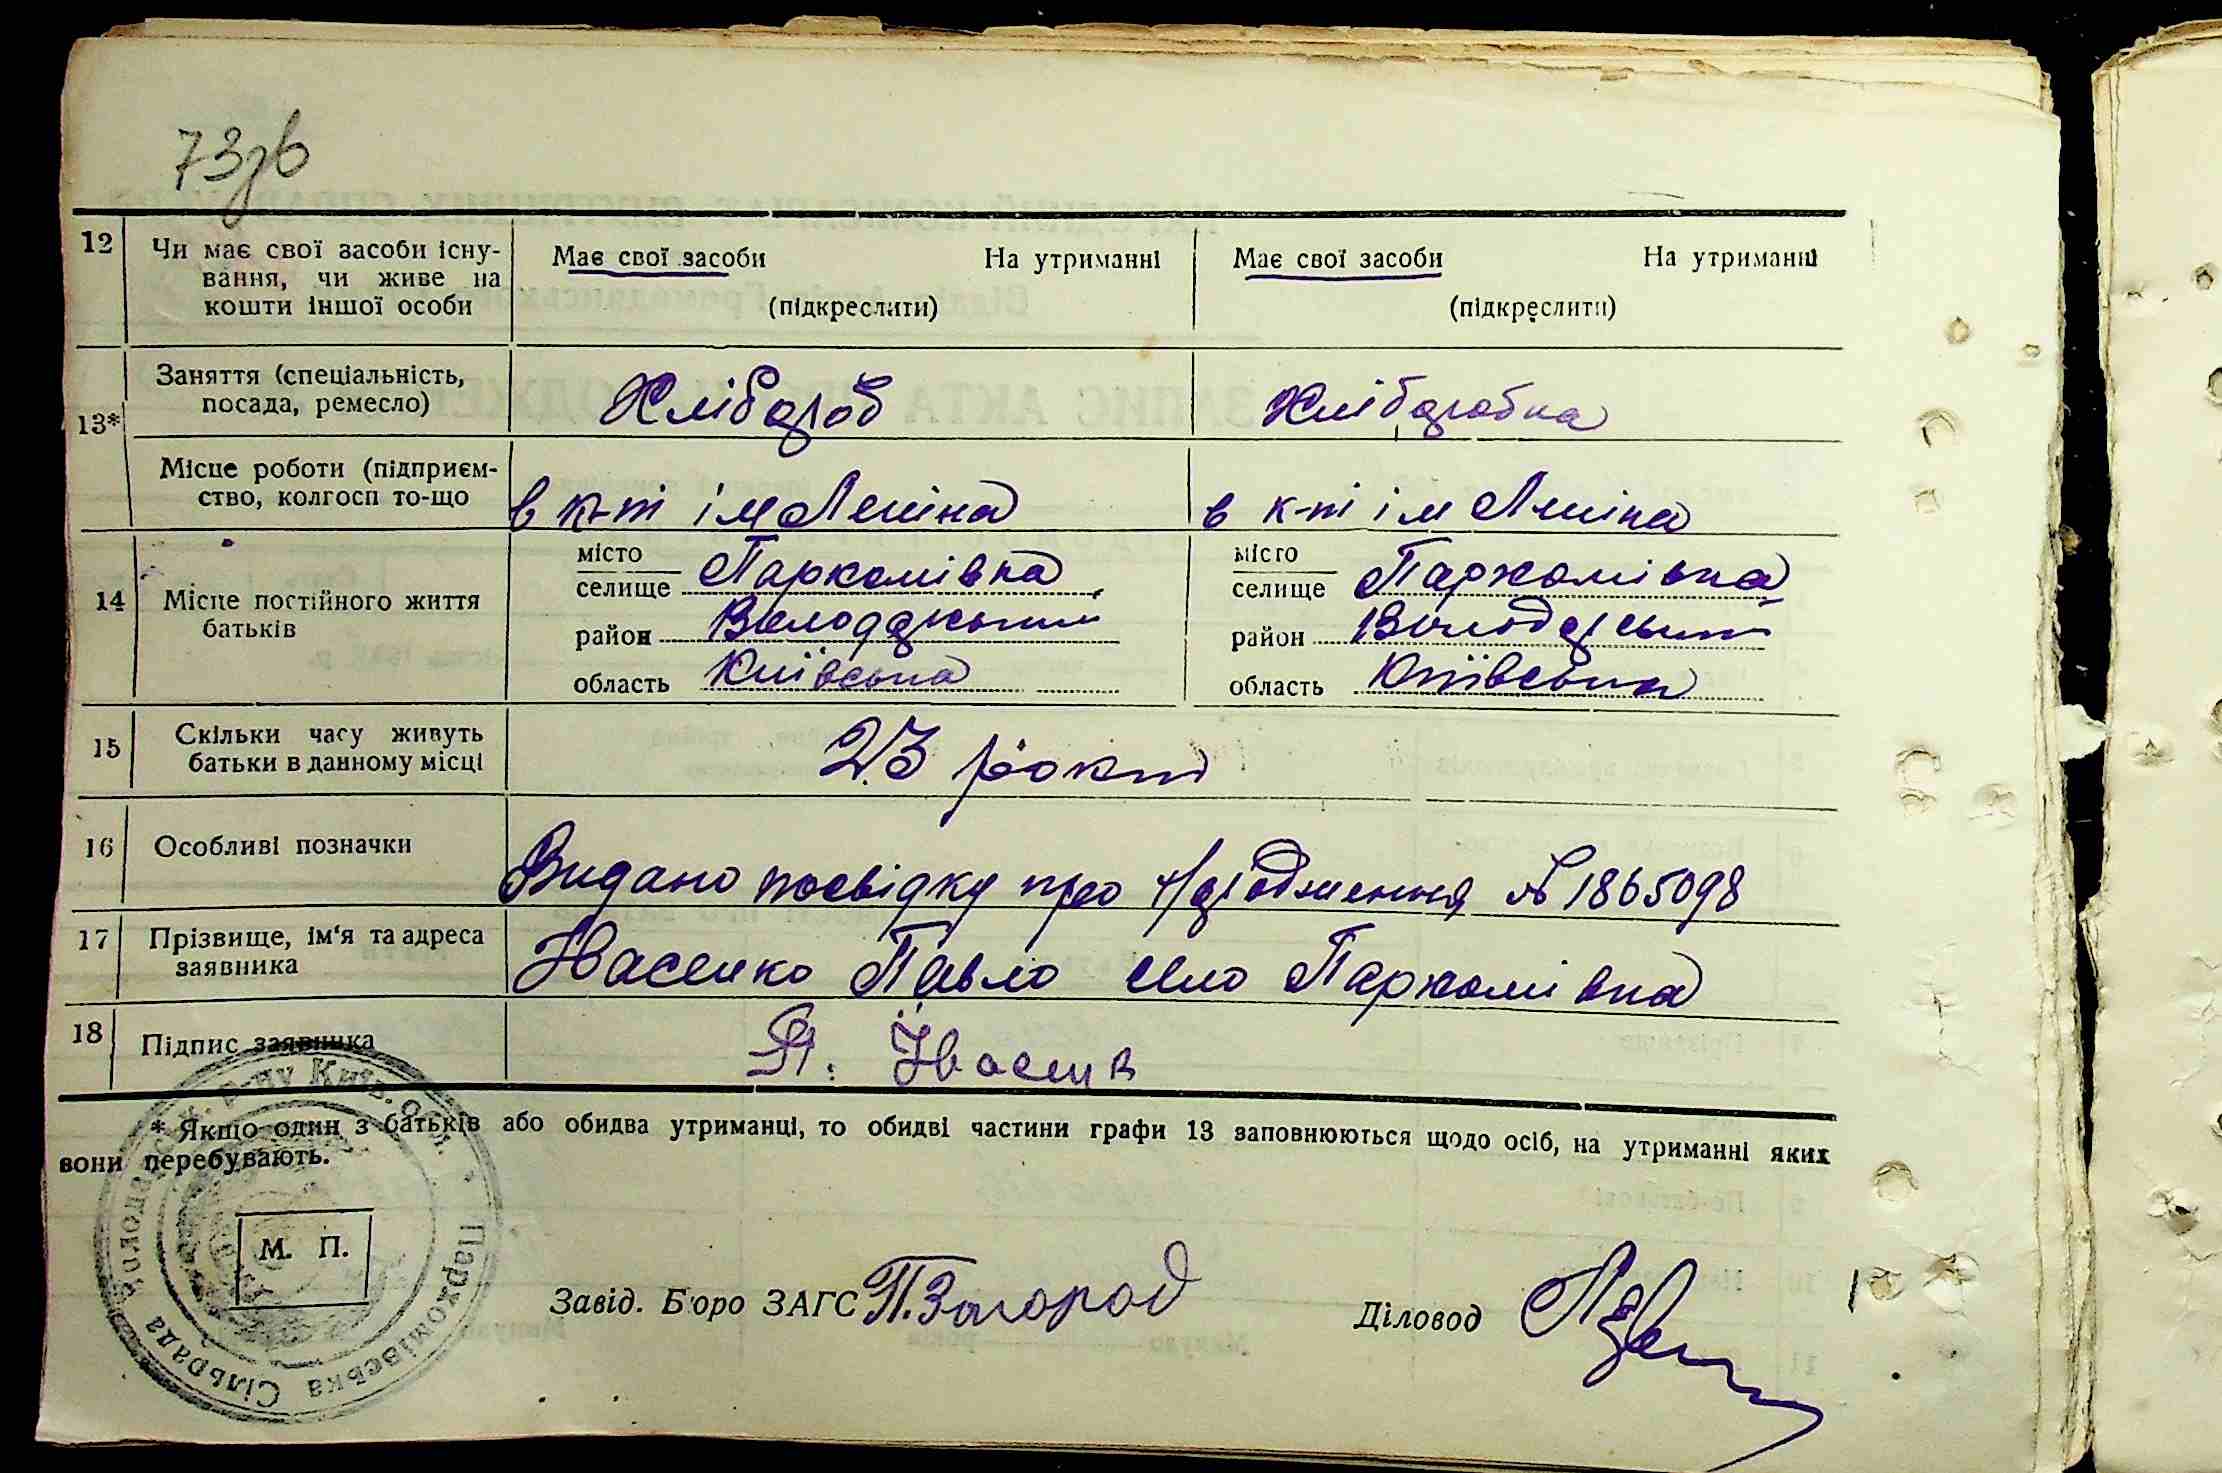 73зв
12 Чи має свої засоби існу- Має свої засоби На утриманні Має свої засоби На утриманні
вання, чи живе на
кошти іншої особи (підкреслити) (підкреслити)
13* Заняття (спеціальність, Хлібороб Хліборобка
посада, ремесло)
Місце роботи (підприєм-
ство, колгосп то-що в к-пі ім Леніна в к-пі ім Леніна
14 Місце постійного життя батьків
місто селище Пархомівка місто селище Пархомівка
район Володарський район Володарський
область Київська область Київська
15 Скільки часу живуть
батьки в данному місці 23 роки
16 Особливі позначки Видано посвідку про народження № 1865098
17 Прізвище, ім'я та адреса
заявника Івасенко Павло село Пархомівка
18 Підпис заявника П. Івасен
* Якщо один з батьків або обидва утриманці, то обидві частини графи 13 заповнюються щодо осіб, на утриманні яких
вони перебувають.
Пархомівська Сільрада Р-ну Київ. обл.
М. П.
Завід. Бюро ЗАГС П. Загород Діловод